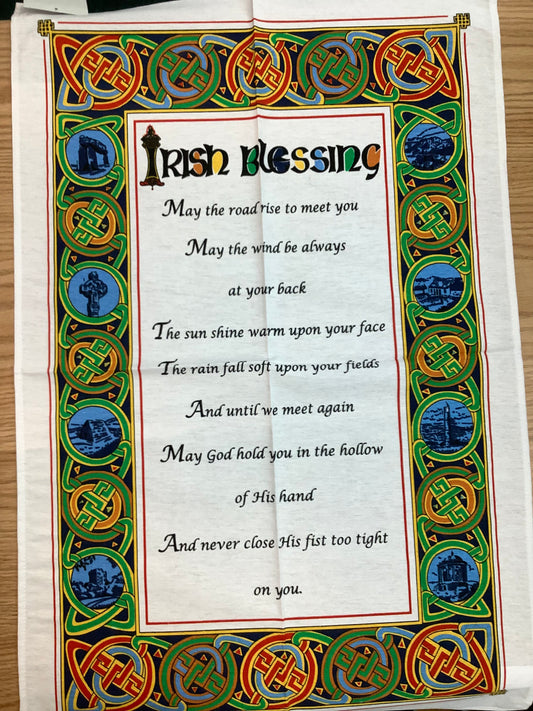 Irish Blessing
May the road rise to meet you
May the wind be always
at your back
The sun shine warm upon your face
The rain fall soft upon your fields
And until we meet again
May God hold you in the hollow
of His hand
And never close His fist too tight
on you.